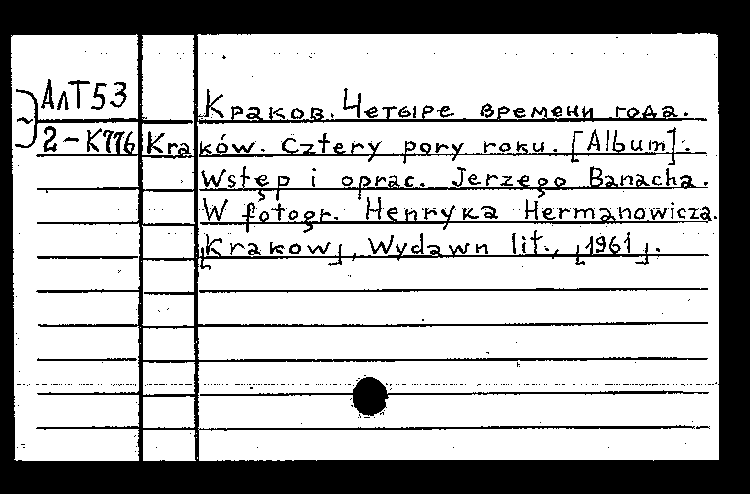 АлТ53
Краков. Четыре времени года.
2-К776 Kraków. Cztery pory roku. [Album].
Wstęp i oprac. Jerzego Banacha.
W fotogr. Henryka Hermanowicza.
[Krakow], Wydawn lit., [1961].